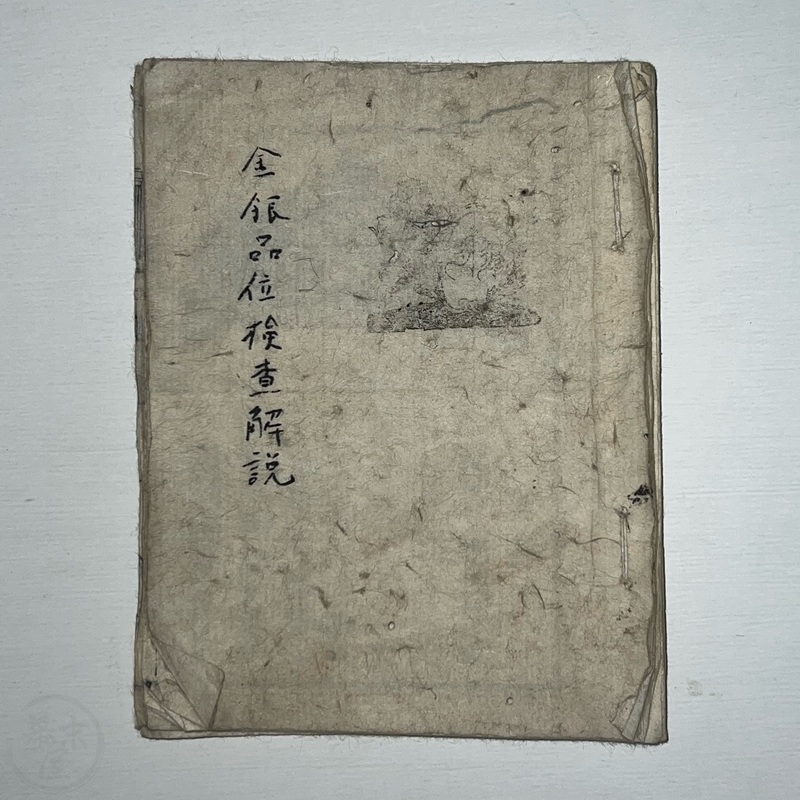 金銀品位検査解説